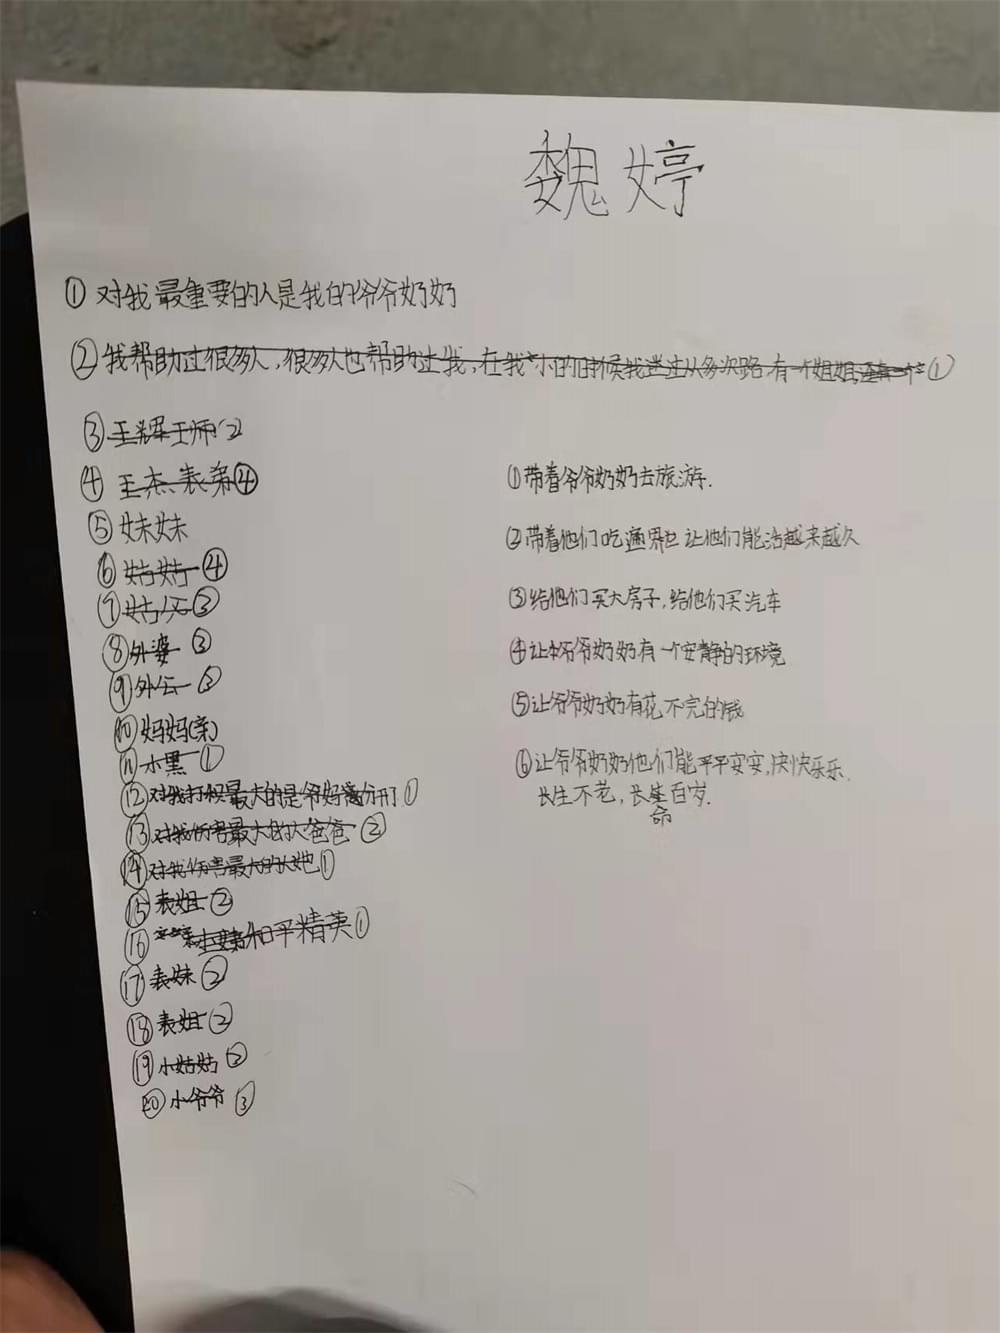 魏婷
①对我最重要的人是我的爷爷奶奶
②我帮助过很多人,很多人也帮助过我,在我小的时候我迷过从多次路 有一个姐姐 ①
③王辉王师 ②
④王杰 表弟④
⑤妹妹
⑥姑姑④
⑦姑公③
⑧外婆 ③
⑨外公 ③
⑩妈妈(亲)
11 小黑 ①
12 对我打积最大的是爷好离分开了①
13 对我伤害最大的人爸爸 ②
14 对我伤害最大的人她①
15 表姐②
16 和平精英①
17 表妹②
18 表姐②
19 小姑姑 ②
20 小爷爷 ③
①带着爷爷奶奶去旅游.
②带着他们吃通界也让他们能活越来越久
③给他们买大房子,给他们买汽车
④让爷爷奶奶有一个安静的环境
⑤让爷爷奶奶有花不完的钱
⑥让爷爷奶奶他们能平平安安,快快乐乐.
长生不老,长生百岁.
命